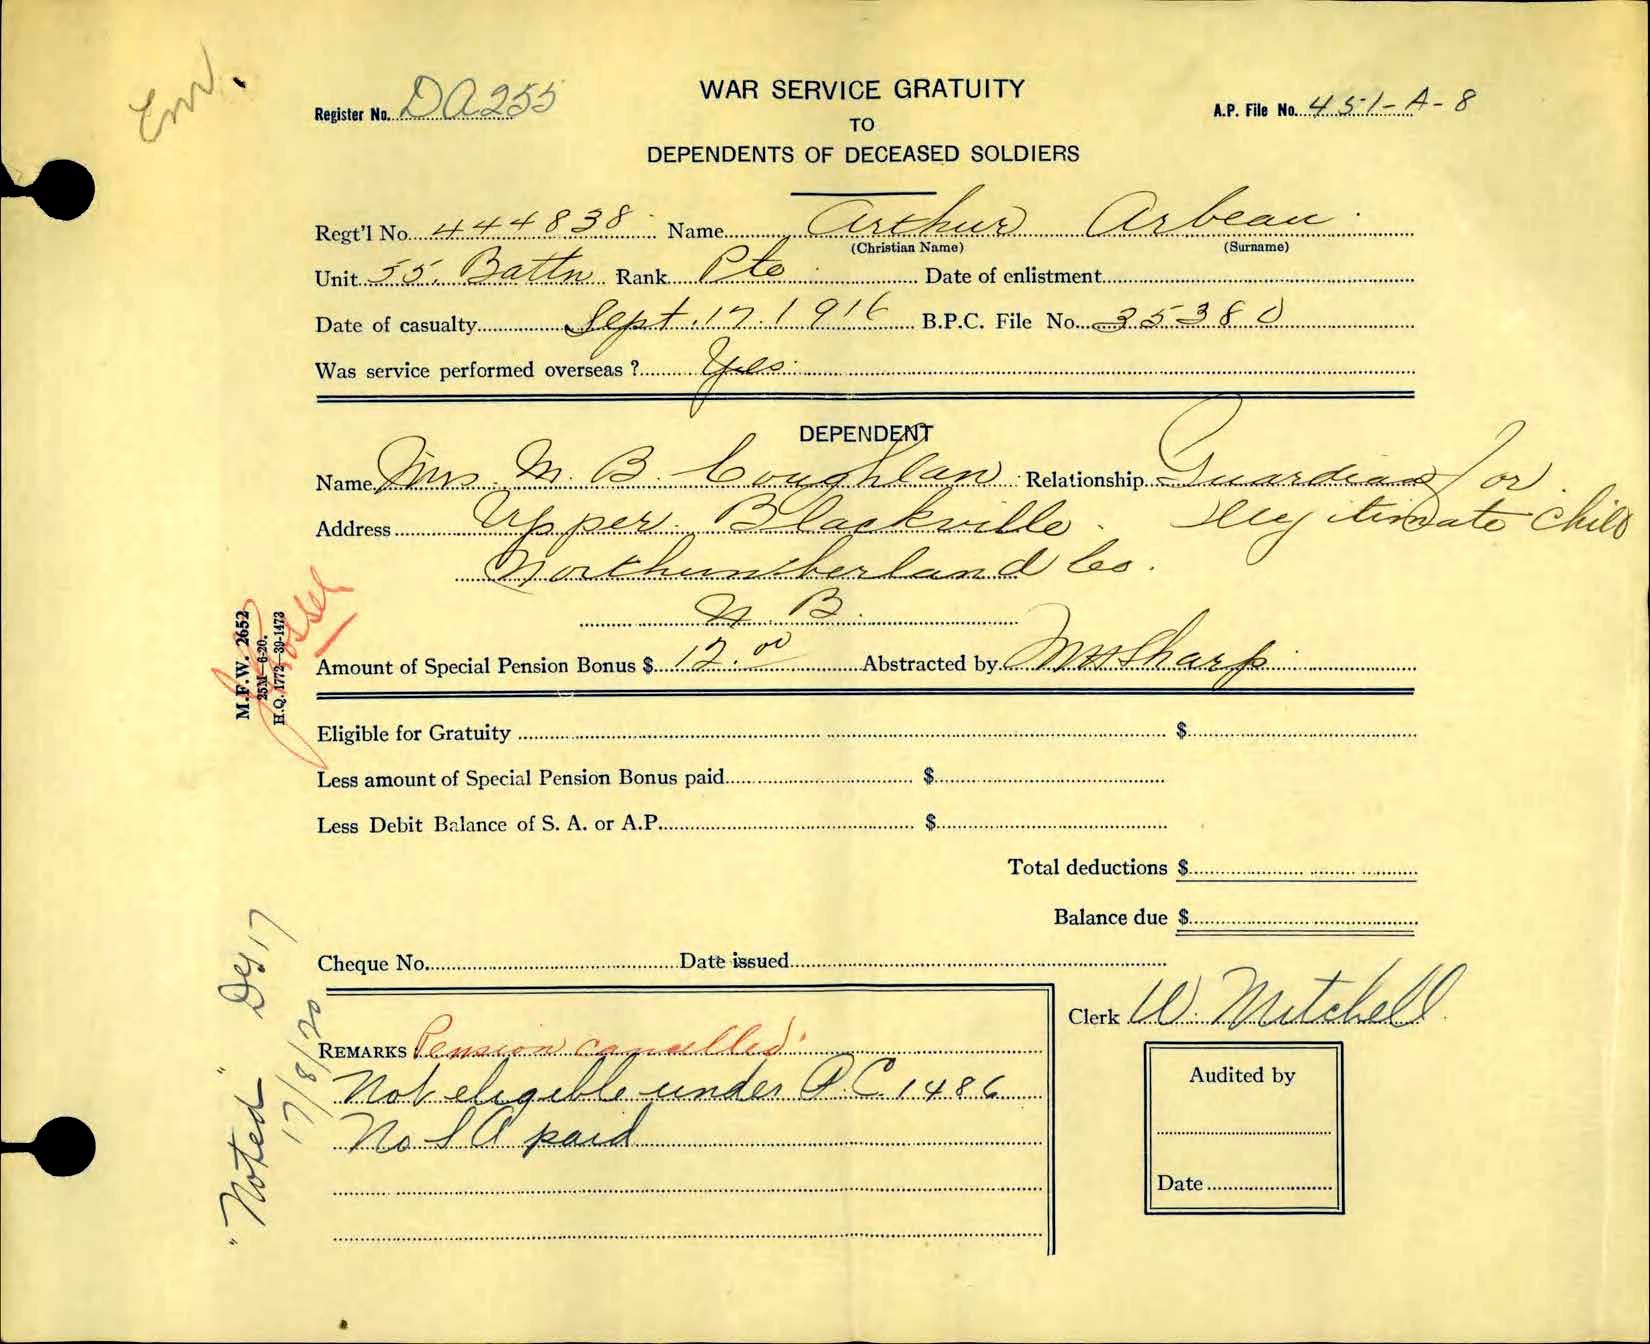 Emr.
Register No. DA255
WAR SERVICE GRATUITY
TO
DEPENDENTS OF DECEASED SOLDIERS
A.P. File No. 451-A-8
Regt'l No. 444838 Name Arthur Arbeau
(Christian Name) (Surname)
Unit 55. Battn Rank Pte Date of enlistment
Date of casualty Sept. 17. 1916 B.P.C. File No. 35380
Was service performed overseas ? Yes
DEPENDENT
Name Mrs. M. B. Coughlan Relationship Guardian for
Address Upper Blackville Illegitimate Child
Northumberland Co.
N. B.
Amount of Special Pension Bonus $ 12.00 Abstracted by MHSharp
M.F.W. 2652
25M—6-20.
H.Q. 1772—39-1473
Eligible for Gratuity $
Less amount of Special Pension Bonus paid $
Less Debit Balance of S. A. or A.P. $
Total deductions $
Balance due $
Cheque No. Date issued
Clerk W. Mitchell
REMARKS Pension cancelled
Not eligible under P.C. 1486
No S A paid
Audited by
Date
"Noted"
17/8/20